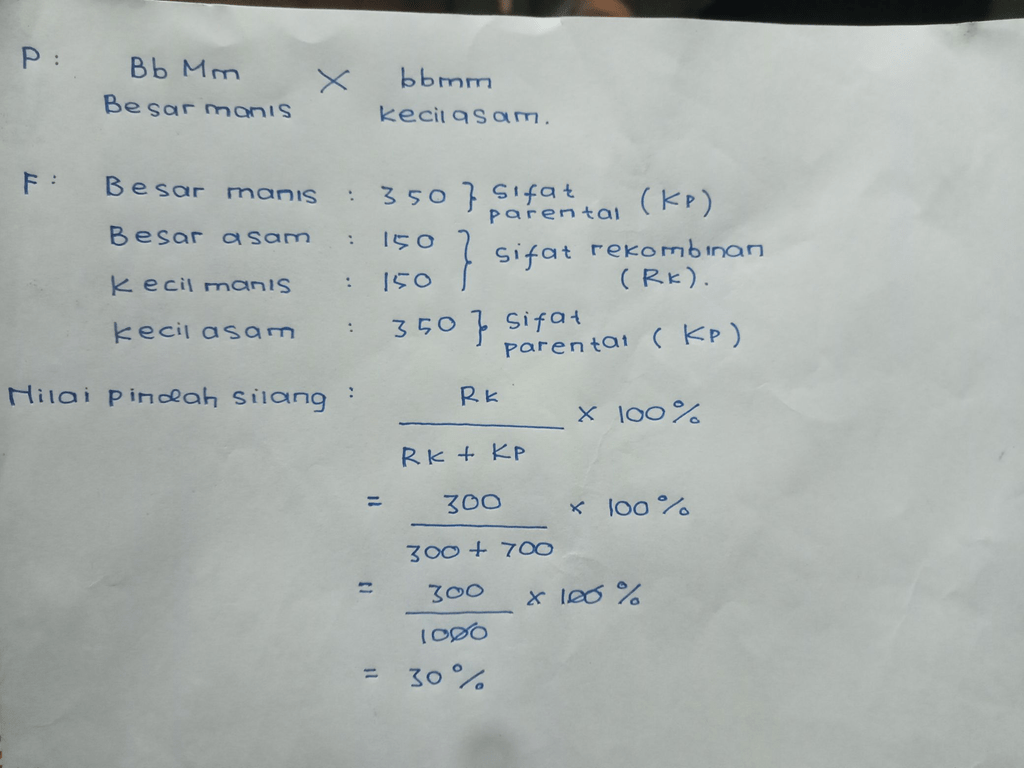 P : Bb Mm X bbmm
Besar manis kecil asam.
F : Besar manis : 350 } sifat parental (KP)
Besar asam : 150 } sifat rekombinan
kecil manis : 150 (RK).
kecil asam : 350 } sifat parental (KP)
Nilai pindah silang : RK / RK + KP x 100%
= 300 / 300 + 700 x 100%
= 300 / 1000 x 100 %
= 30 %